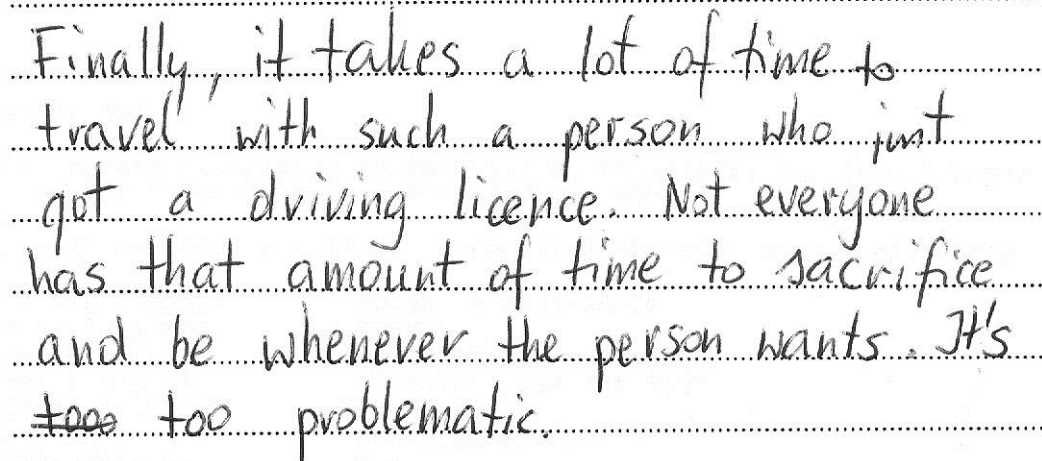 Finally, it takes a lot of time to
travel with such a person who just
got a driving licence. Not everyone
has that amount of time to sacrifice
and be whenever the person wants. It's
tooo too problematic.